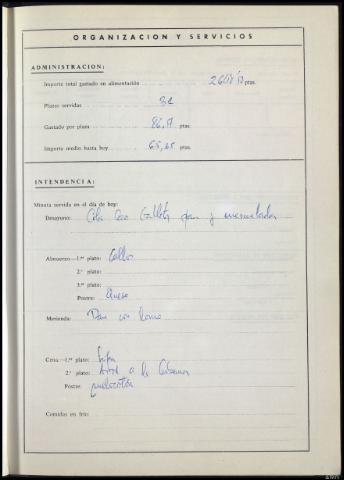 ORGANIZACION Y SERVICIOS
ADMINISTRACION:
Importe total gastado en alimentación ptas.
Plazas servidas 31
Gastado por plaza ptas.
Importe medio hasta hoy 65,65 ptas.
INTENDENCIA:
Minuta servida en el día de hoy:
Desayuno: Cola Cao pan y mermelada
Almuerzo.—1.er plato: Callos
2.º plato:
3.er plato:
Postre: Queso
Merienda: Pan con lomo
Cena.—1.er plato: Sopa
2.º plato: Arroz a la Cubana
Postre: melocotón
Comidas en frío: